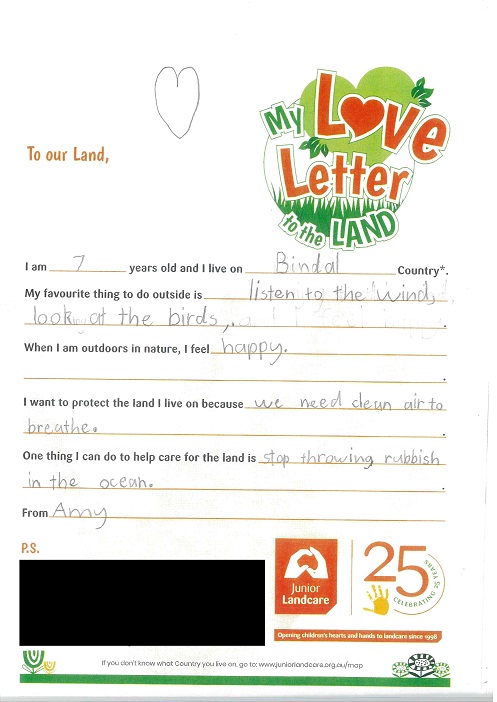 My Love
Letter
to the LAND
To our Land,
I am 7 years old and I live on Bindal Country*.
My favourite thing to do outside is listen to the wind,
look at the birds,.
When I am outdoors in nature, I feel happy.
.
I want to protect the land I live on because we need clean air to
breathe. .
One thing I can do to help care for the land is stop throwing rubbish
in the ocean. .
From Amy
P.S.
Junior
Landcare
25
CELEBRATING 25 YEARS
Opening children's hearts and hands to landcare since 1998
If you don't know what Country you live on, go to: www.juniorlandcare.org.au/map